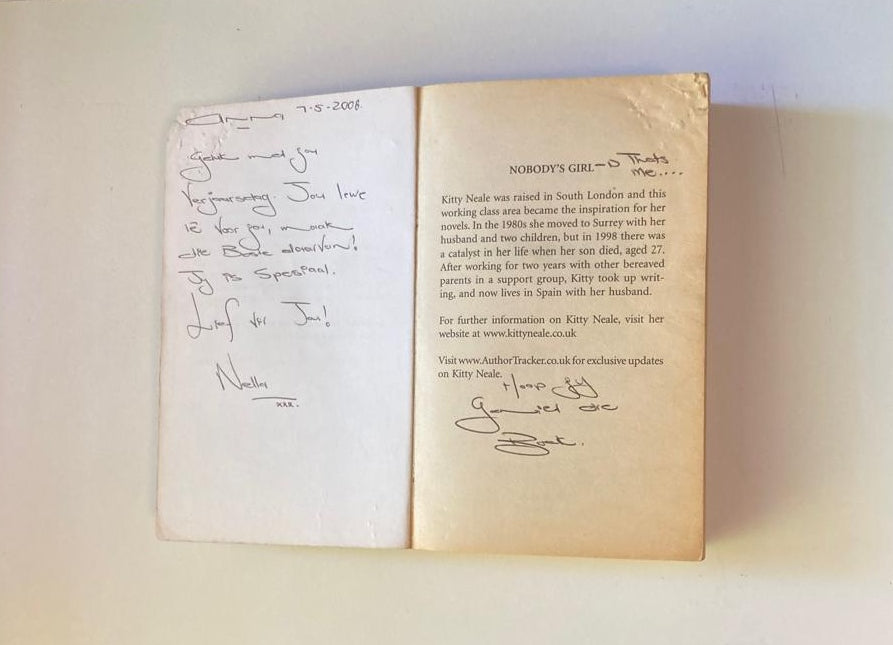 Anna 7-5-2008.
Geluk met jou
Verjaarsdag. Jou lewe
is voor jou, maak
die Beste daarvan!
Jy is Spesiaal.
Lief vir Jou!
Nella
xxx.
NOBODY'S GIRL → Thats
me....
Kitty Neale was raised in South London and this
working class area became the inspiration for her
novels. In the 1980s she moved to Surrey with her
husband and two children, but in 1998 there was
a catalyst in her life when her son died, aged 27.
After working for two years with other bereaved
parents in a support group, Kitty took up writ-
ing, and now lives in Spain with her husband.
For further information on Kitty Neale, visit her
website at www.kittyneale.co.uk
Visit www.AuthorTracker.co.uk for exclusive updates
on Kitty Neale.
Hoop jy
Geniet die
Boek.